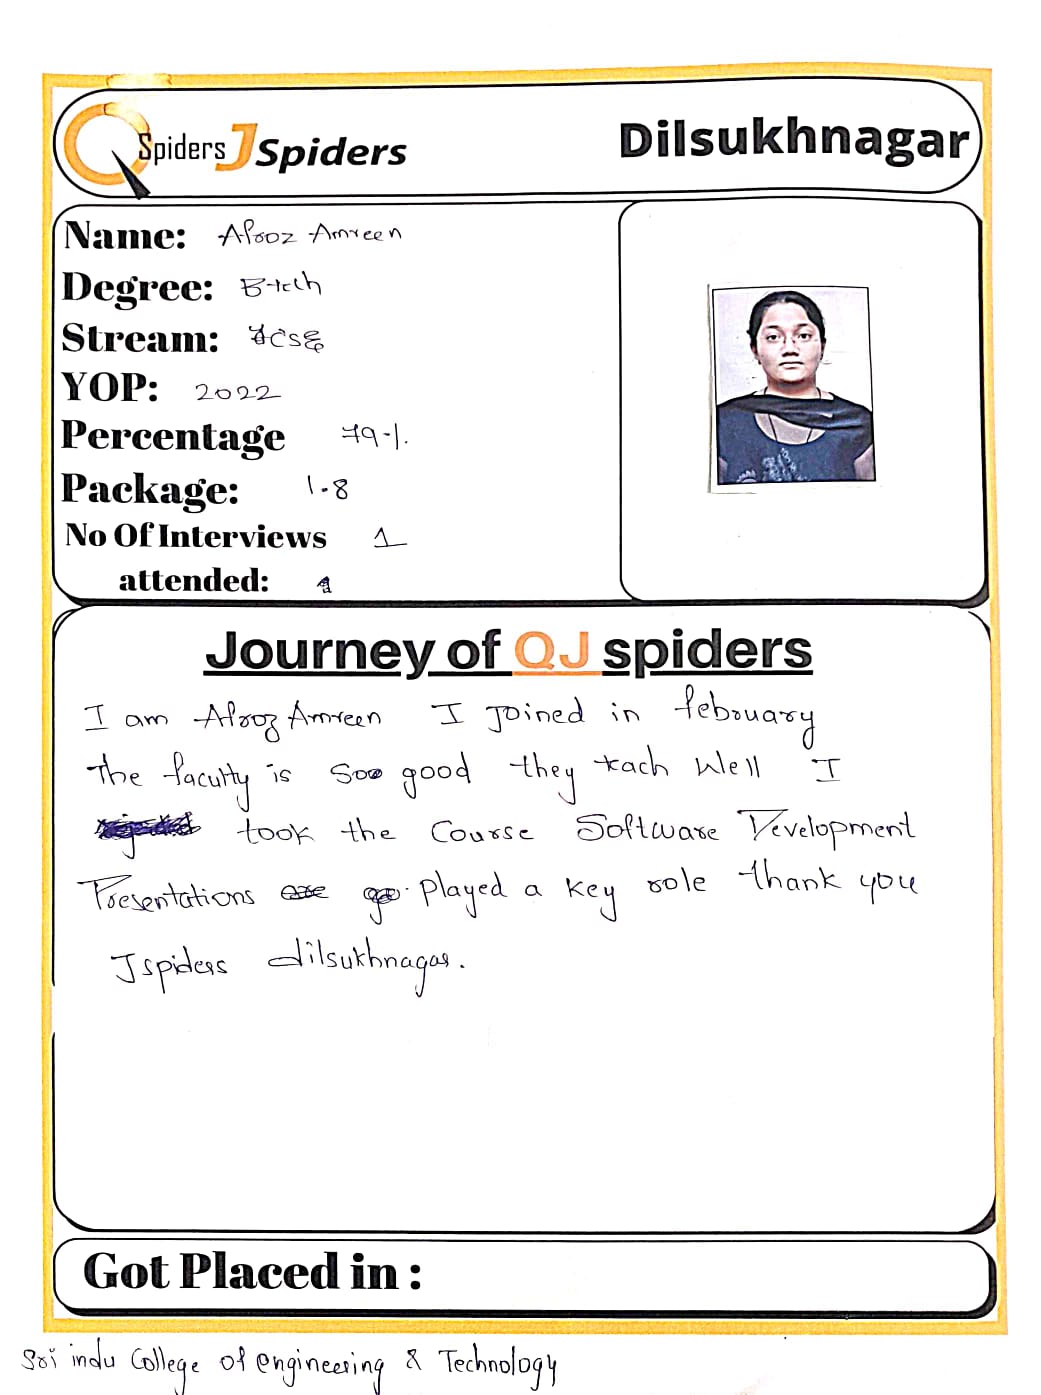 QSpiders JSpiders Dilsukhnagar
Name: Afrooz Amreen
Degree: B-tech
Stream: CSE
YOP: 2022
Percentage 79%
Package: 1.8
No Of Interviews 1
attended: 1
Journey of QJ spiders
I am Afrooz Amreen I Joined in february
The faculty is Soo good they teach Well I
took the Course Software Development
Presentations Played a Key role thank you
Jspiders dilsukhnagar.
Got Placed in :
Sri indu College of engineering & Technology